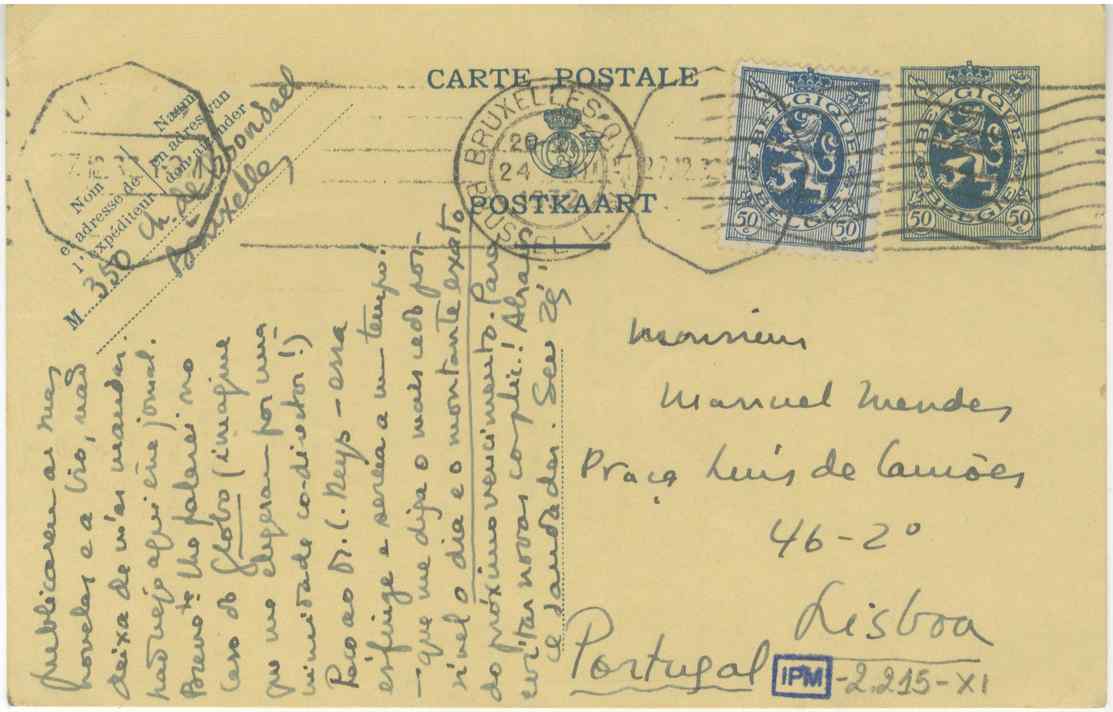 CARTE POSTALE
POSTKAART
BRUXELLES-Q.L.
BRUSSEL L.
24
BELGIQUE
BELGIE
50 c 50 c
BELGIQUE
BELGIE
50 c 50 c
Nom
et adresse de
l'expéditeur
Naam
en adres van
den afzender
M. 350 Ch. de
Bruxelles
publicarem as mas
novelas e a isso, não
deixa de m'as mandar.
não vejo aqui êne jornal.
falarei no
caso do Globo (imagine
que me elegeram por una-
nimidade co-diretor!)
Peço ao Dr. C. Neyp - essa
esfinge e sereia a um tempo!
- que me diga o mais cedo pos-
sível o dia e o montante exato
do próximo vencimento. Para
evitar novas complic.! Abra-
ce saudades. Seu Zé
Monsieur
Manuel Mendes
Praça Luis de Camões
46-2º
Lisboa
Portugal
IPM -2.215-XI